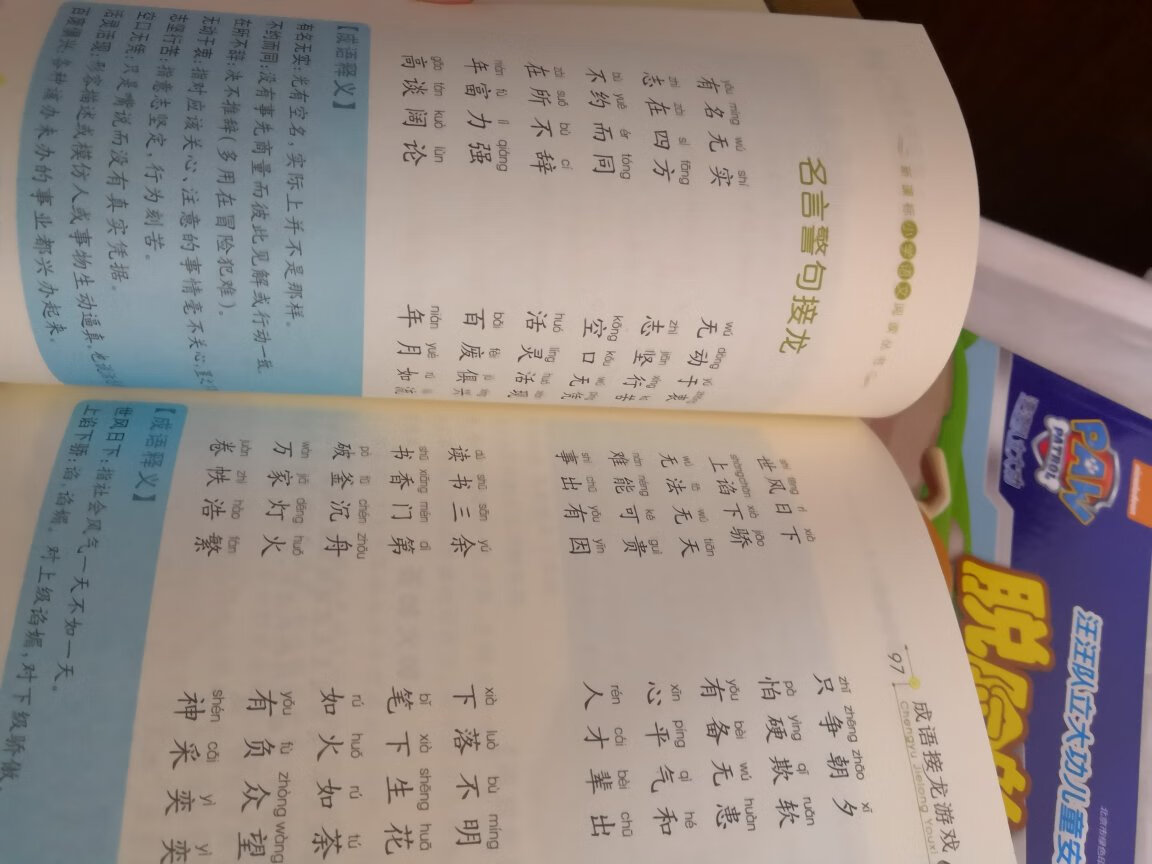 新课标小学语文阅读丛书
名言警句接龙
yǒu míng wú shí
有名无实
zhì zài sì fāng
志在四方
bù yuē ér tóng
不约而同
zài suǒ bù cí
在所不辞
nián fù lì qiáng
年富力强
gāo tán kuò lùn
高谈阔论
wú dòng yú zhōng
无动于衷
zhì jiān xíng kǔ
志坚行苦
kōng kǒu wú píng
空口无凭
huó líng huó xiàn
活灵活现
bǎi fèi jù xīng
百废俱兴
nián yuè rú liú
年月如流
【成语释义】
有名无实：光有空名，实际上并不是那样。
不约而同：没有事先商量而彼此见解或行动一致。
在所不辞：决不推辞（多用在冒险犯难）。
无动于衷：指对应该关心、注意的事情毫不关心，
志坚行苦：指意志坚定，行为刻苦。
空口无凭：只是嘴说而没有真实凭据。
活灵活现：形容描述或模仿人或事物生动逼真。
百废俱兴：各种该办未办的事业都兴办起来。
97
成语接龙游戏
Chengyu Jielong Youxi
shì fēng rì xià
世风日下
shàng chǎn xià jiāo
上谄下骄
wú fǎ wú tiān
无法无天
nán néng kě guì
难能可贵
shì chū yǒu yīn
事出有因
zhǐ zhēng zhāo xī
只争朝夕
pà yìng qī ruǎn
怕硬欺软
yǒu bèi wú huàn
有备无患
xīn píng qì hé
心平气和
rén cái bèi chū
人才辈出
dú shū sān yú
读书三余
shū xiāng mén dì
书香门第
pò fǔ chén zhōu
破釜沉舟
wàn jiā dēng huǒ
万家灯火
juàn zhì hào fán
卷帙浩繁
xià luò bù míng
下落不明
bǐ xià shēng huā
笔下生花
rú huǒ rú tú
如火如荼
yǒu fù zhòng wàng
有负众望
shén cǎi yì yì
神采奕奕
【成语释义】
世风日下：指社会风气一天不如一天。
上谄下骄：谄，谄媚。对上级谄媚，对下级骄傲。
nickelodeon
PAW
PATROL
汪汪队立大功儿童安
脱险